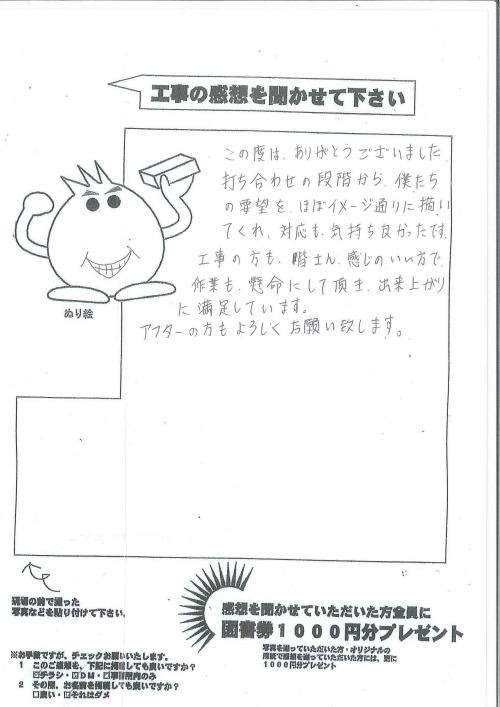 工事の感想を聞かせて下さい
この度は、ありがとうございました。
打ち合わせの段階から、僕たち
の要望を、ほぼイメージ通りに描い
てくれ、対応も、気持ち良かったです。
工事の方も、皆さん、感じのいい方で、
作業も、懸命にして頂き、出来上がり
に満足しています。
アフターの方もよろしくお願い致します。
ぬり絵
現場の前で撮った
写真などを貼り付けて下さい。
感想を聞かせていただいた方全員に
図書券1000円分プレゼント
写真を送っていただいた方・オリジナルの
用紙で感想を送っていただいた方には、更に
1000円分プレゼント
※お手数ですが、チェックお願いいたします。
1 このご感想を、下記に掲載しても良いですか?
☑チラシ・☑DM・☑事務所内のみ
2 その際、お名前を掲載しても良いですか?
□良い・☑それはダメ